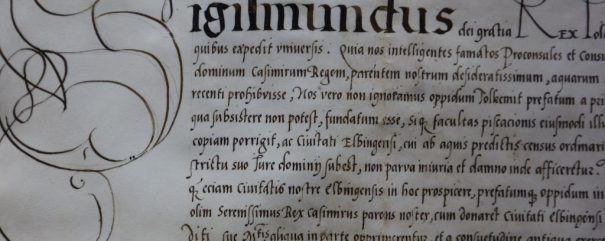 Sigismundus dei gratia Rex Polo
quibus expedit vniuersis. Quia nos intelligentes famatos Proconsules et Consu
dominum Casimirum Regem, parentem nostrum desideratissimum, aquarum
recenti prohibuisse, Nos vero non ignoramus oppidum Tolkemit prefatum a pri
qua subsistere non potest, fundatum esse, siq; facultas piscacionis eiusmodi illi
copiam porrigit, ac Ciuitati Elbingensi, cui ab aquis predictis census ordinari
strictu suo Jure dominij subest, non parva iniuria et damno inde afficeretur.
q; eciam Ciuitatis nostre Elbingensis in hoc prospicere, prefatumq; oppidum in
olim Serenissimus Rex Casimirus parens noster, cum donaret Ciuitati Elbingensi
aliqua in parte opprimeretur, et a consuetudine antiqua